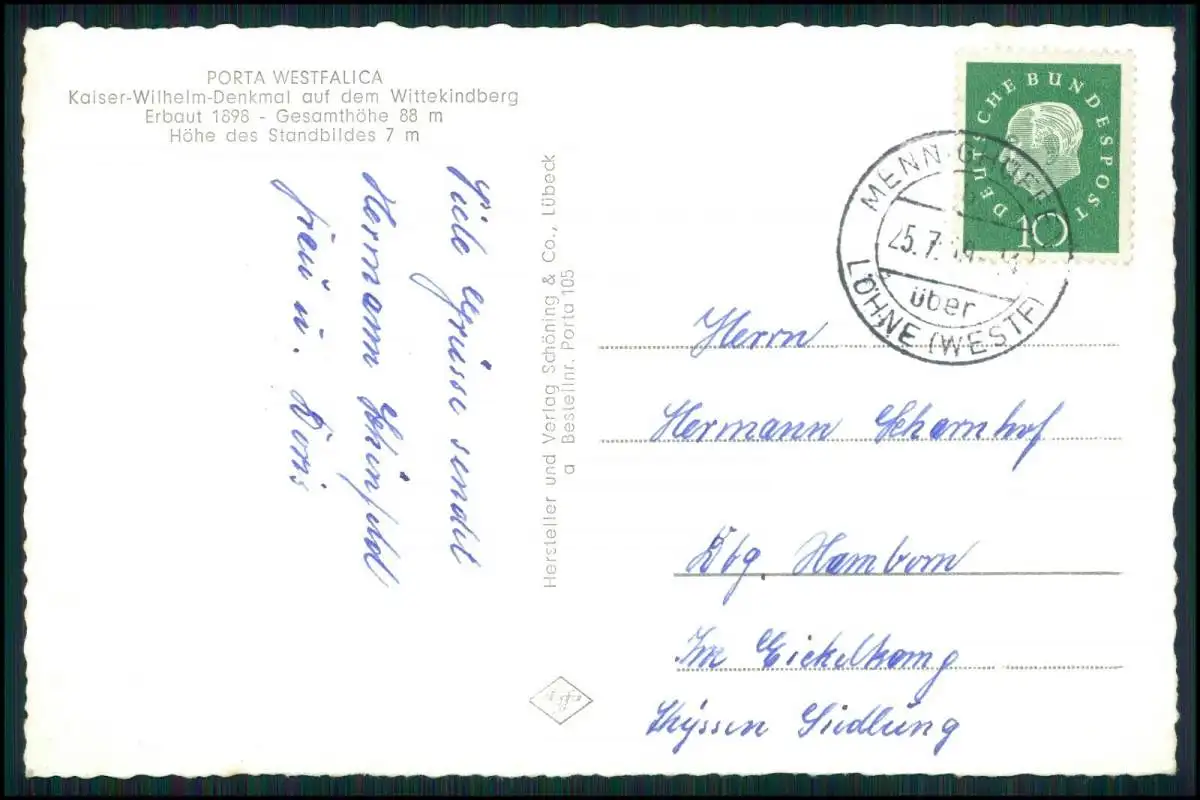 PORTA WESTFALICA
Kaiser-Wilhelm-Denkmal auf dem Wittekindberg
Erbaut 1898 - Gesamthöhe 88 m
Höhe des Standbildes 7 m
Viele Grüsse sendet
Hermann
frau u. Doris
Hersteller und Verlag Schöning & Co., Lübeck
a Bestellnr. Porta 105
DEUTSCHE BUNDESPOST
10
25.7.
über
LÖHNE (WESTF)
Herrn
Hermann Scharnhof
Dbg. Hamborn
Im Eickelkamp
Thyssen Siedlung